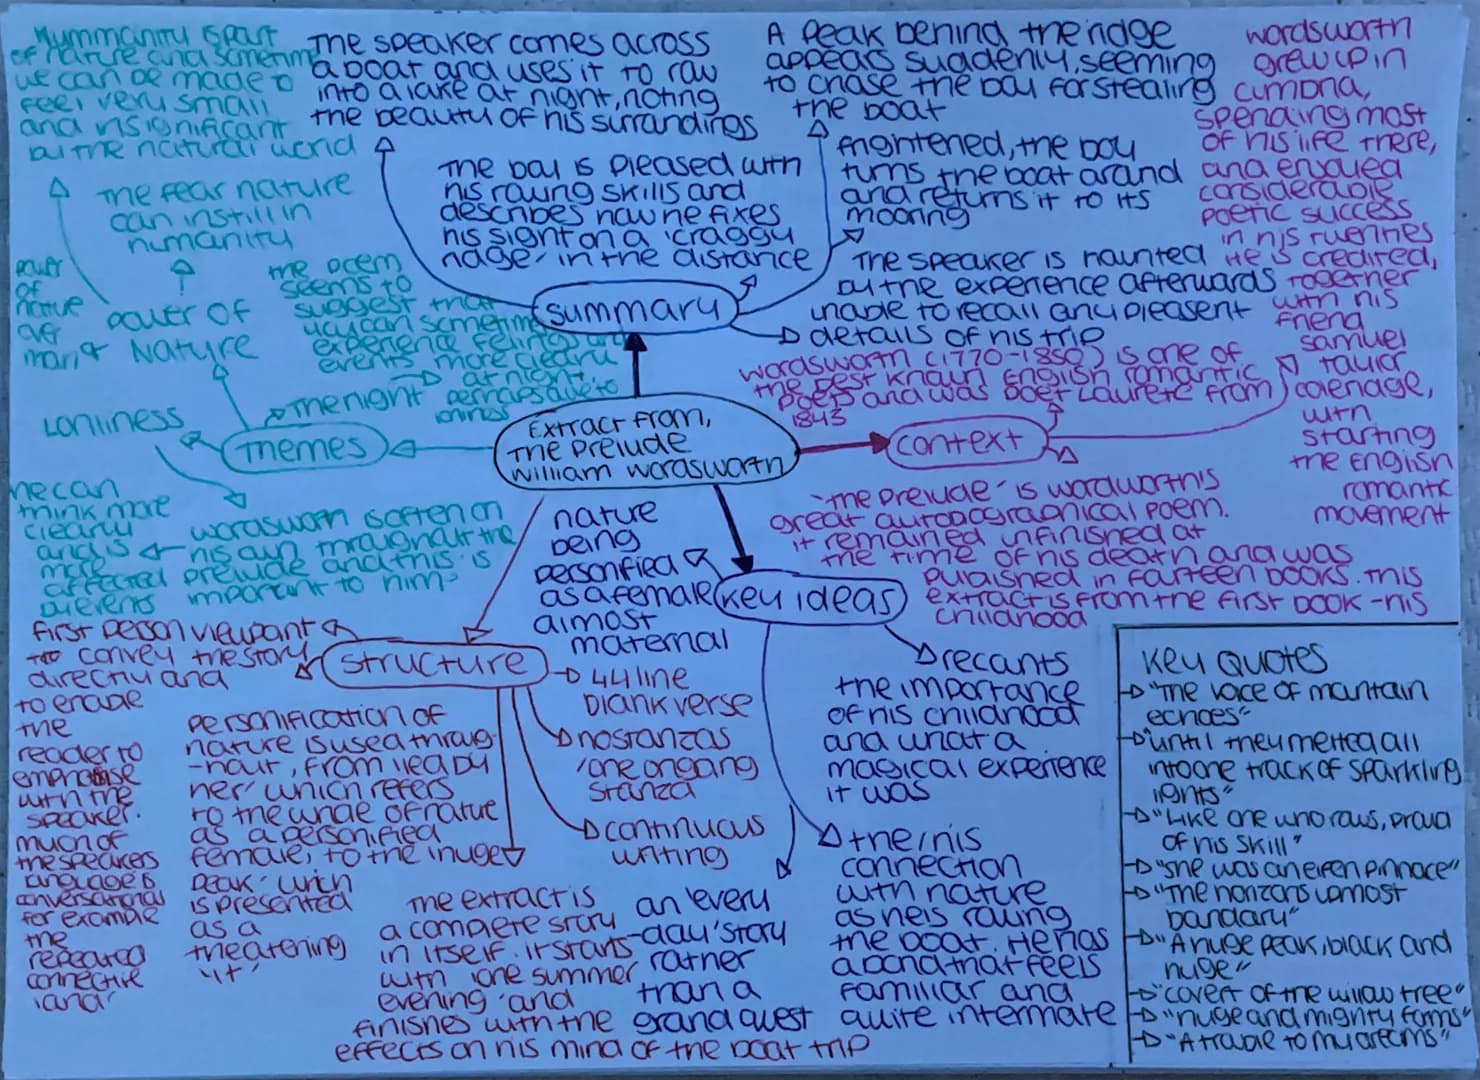 Extract from,
The Prelude
William Wordsworth
summary
The speaker comes across
a boat and uses it to row
into a lake at night, noting
the beauty of his surrandings
The boy is pleased with
his rowing skills and
describes how he fixes
his sight on a 'craggy
ridge' in the distance
A peak behind the ridge
appears suddenly, seeming
to chase the boy for stealing
the boat
frightened, the boy
turns the boat around
and returns it to its
mooring
The speaker is haunted
by the experience afterwards
unable to recall any pleasent
details of his trip
context
wordsworth (1770-1850) is one of
the best known English romantic
poets and was Poet Laurete from
1843
wordsworth
grew up in
cumbria,
spending most
of his life there,
and enjoyed
considerable
poetic success
in his
He is credited,
together
with his
friend
samuel
taylor
colerage,
with
starting
the English
romantic
movement
'The Prelude' is wordworth's
great autobographical poem.
it remained unfinished at
the time of his death and was
published in fourteen books. This
extract is from the first book - his
childhood
key ideas
nature
being
personfied
as a female
almost
maternal
recants
the importance
of his childhood
and what a
magical experience
it was
the/his
connection
with nature
as he is rowing
the boat. He has
a bond that feels
familiar and
quite intermate
an 'every
-day' story
rather
than a
grand quest
structure
first person viewpoint
to convey the story
directly and
to enable
the
reader to
with the
speaker.
much of
the speakers
language is
conversational
for example
the
repeated
connective
'and'
44 line
blank verse
no stanzas
'one ongoing
stanza
continuous
writing
personification of
nature is used throug-
-hout, from 'lead by
her' which refers
to the whole of nature
as a personified
female, to the 'huge
peak' wich
is presented
as a
theartening
'it'
The extract is
a complete story
in itself. it starts
with 'one summer
evening' and
finishes with the
effects on his mind of the boat trip
themes
power of
Nature
The fear nature
can instill in
humanity
Hummanity is part
of nature and sometimes
we can be made to
feel very small
and insignificant
by the natural world
power
of
nature
over
man
The night
The poem
seems to
suggest that
you can sometimes
experience feelings and
events more clearly
at night
perhaps due to
Lonliness
wordsworth is often on
his own throughout the
prelude and this is
important to him
he can
think more
clearly
and is
more
affected
by events
KEY QUOTES
"The voice of mountain
echoes"
"until they melted all
into one track of sparkling
lights"
"Like one who rows, proud
of his skill"
"She was an elfen pinnace"
"The horizons upmost
boundary"
"A huge peak, black and
huge"
"covert of the willow tree"
"huge and mighty forms"
"A trouble to my dreams"